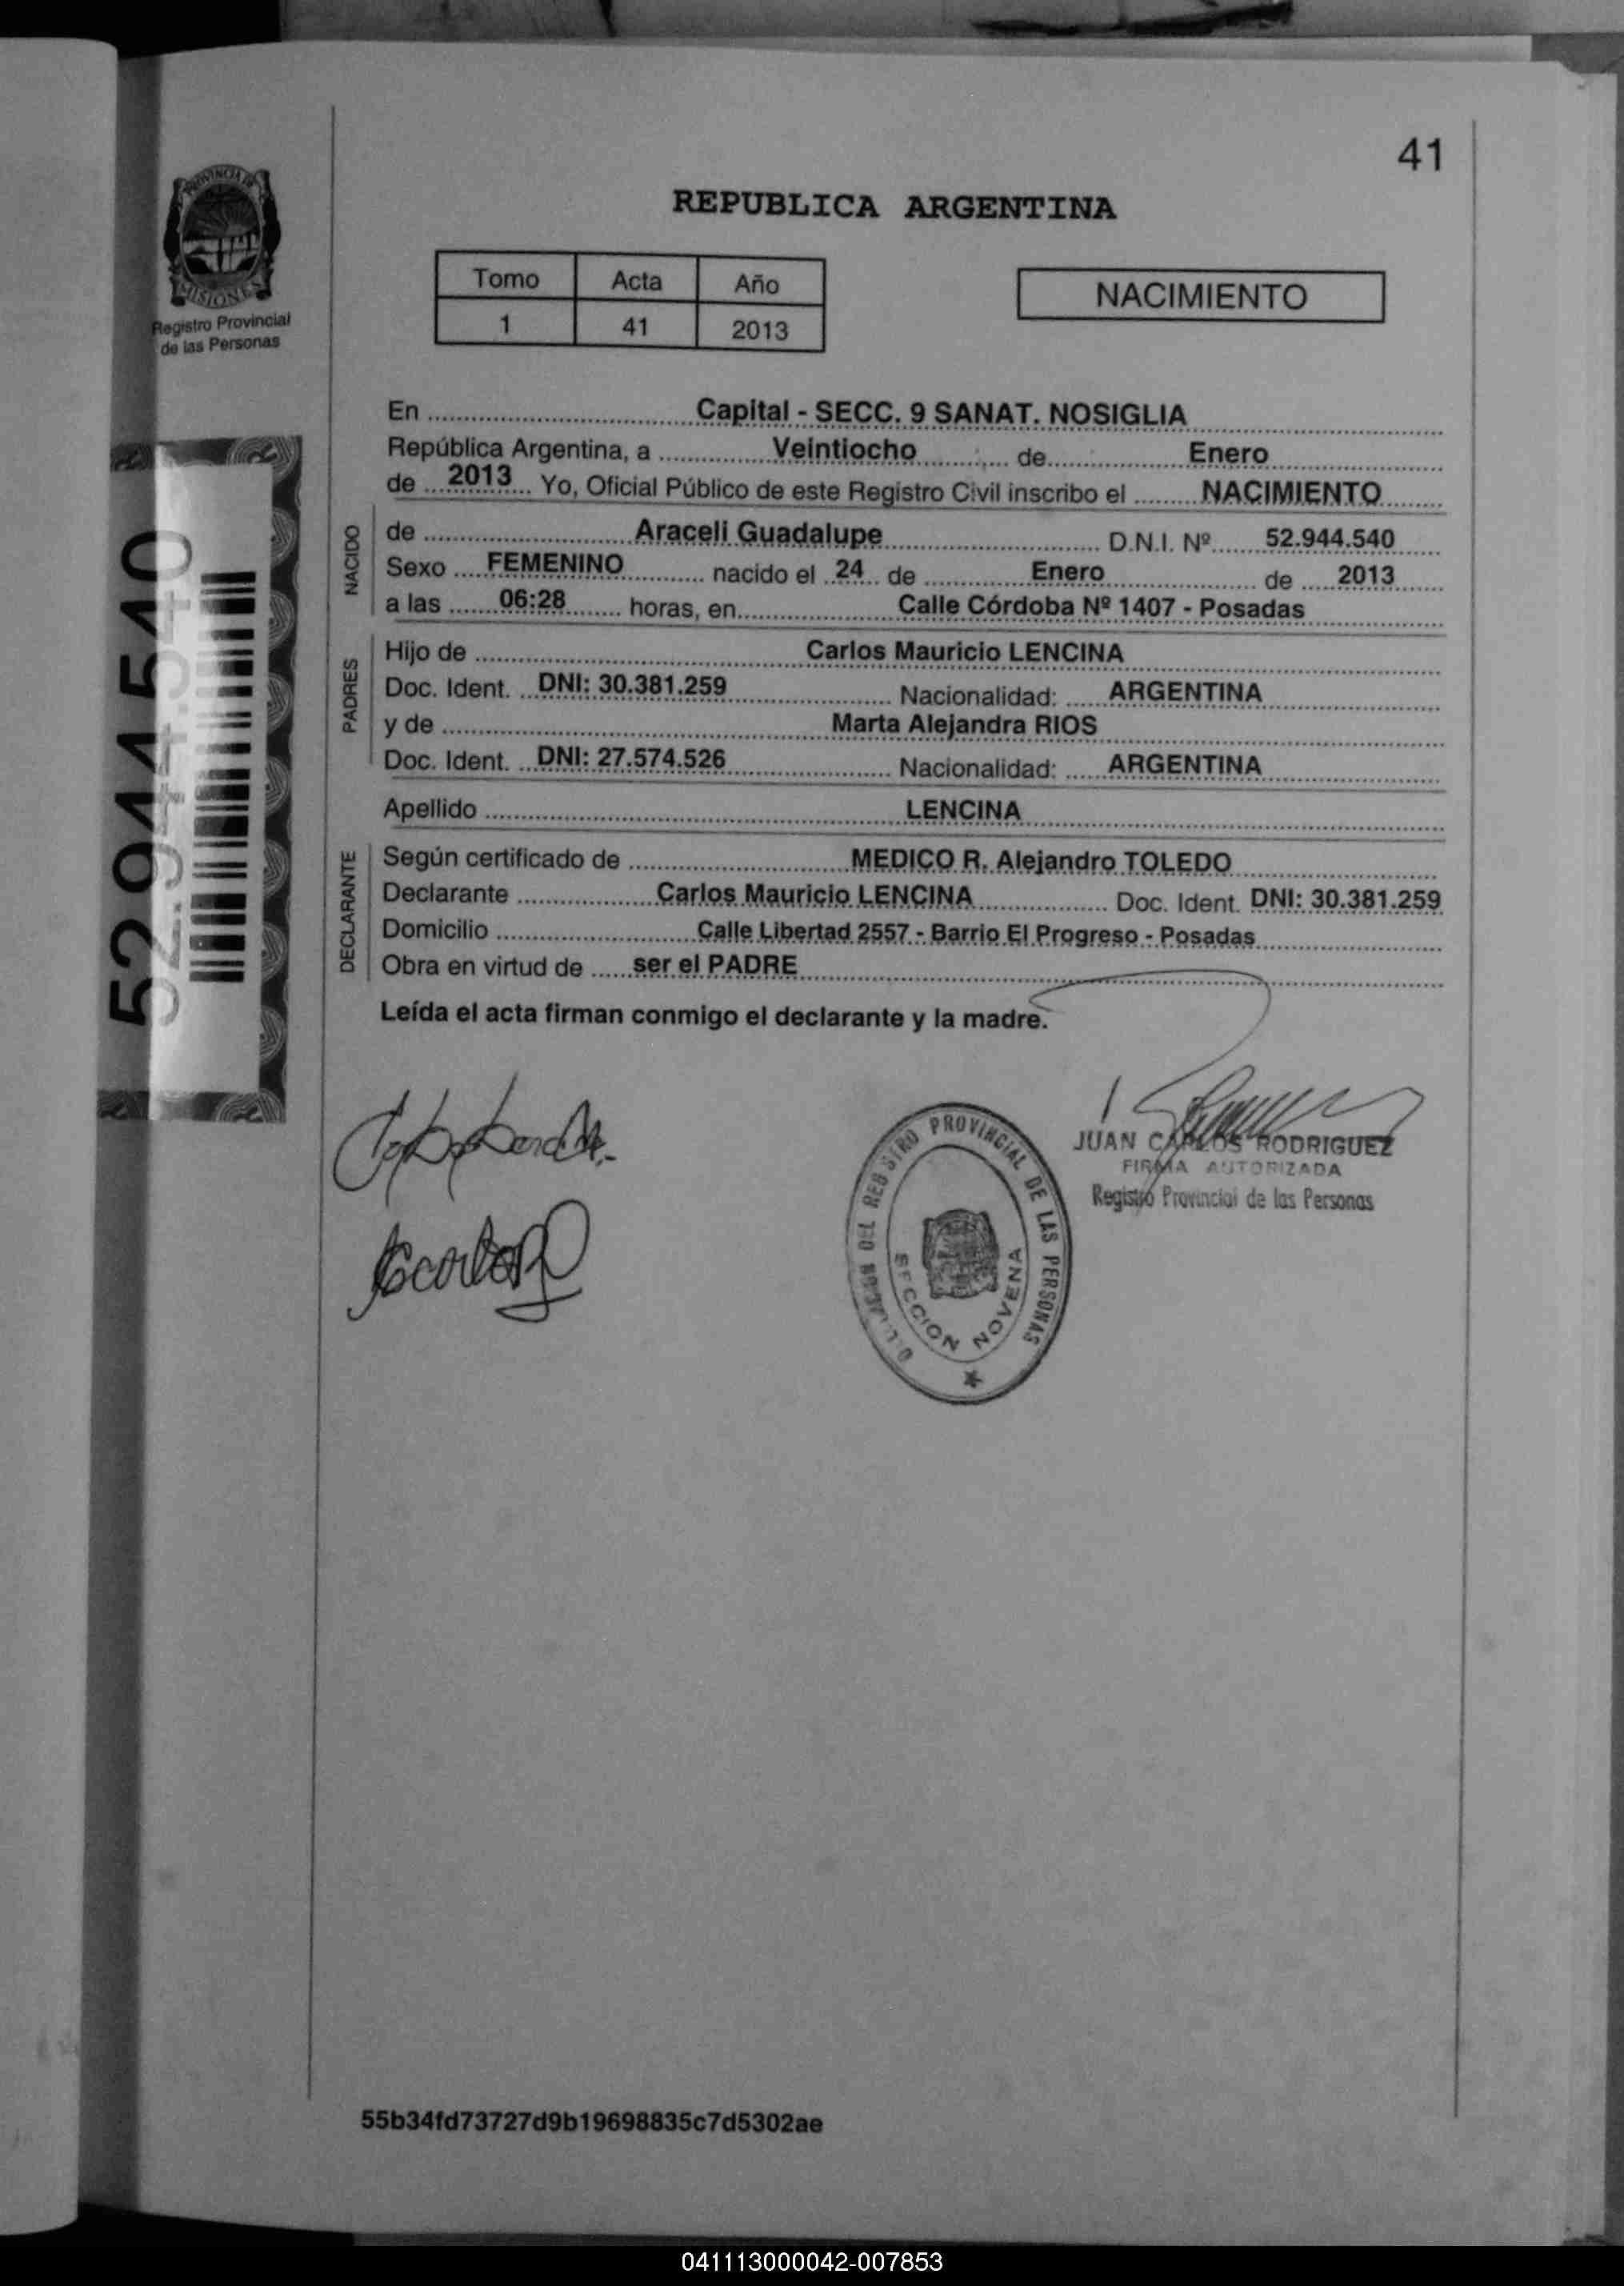 41
PROVINCIA DE
MISIONES
Registro Provincial
de las Personas
REPUBLICA ARGENTINA
Tomo Acta Año
1 41 2013
NACIMIENTO
52.944.540
En Capital - SECC. 9 SANAT. NOSIGLIA
República Argentina, a Veintiocho de Enero
de 2013 Yo, Oficial Público de este Registro Civil inscribo el NACIMIENTO
NACIDO
de Araceli Guadalupe D.N.I. Nº 52.944.540
Sexo FEMENINO nacido el 24 de Enero de 2013
a las 06:28 horas, en Calle Córdoba Nº 1407 - Posadas
PADRES
Hijo de Carlos Mauricio LENCINA
Doc. Ident. DNI: 30.381.259 Nacionalidad: ARGENTINA
y de Marta Alejandra RIOS
Doc. Ident. DNI: 27.574.526 Nacionalidad: ARGENTINA
Apellido LENCINA
DECLARANTE
Según certificado de MEDICO R. Alejandro TOLEDO
Declarante Carlos Mauricio LENCINA Doc. Ident. DNI: 30.381.259
Domicilio Calle Libertad 2557 - Barrio El Progreso - Posadas
Obra en virtud de ser el PADRE
Leída el acta firman conmigo el declarante y la madre.
JUAN CARLOS RODRIGUEZ
FIRMA AUTORIZADA
Registro Provincial de las Personas
DEL REGISTRO PROVINCIAL DE LAS PERSONAS
SECCION NOVENA
55b34fd73727d9b19698835c7d5302ae
041113000042-007853